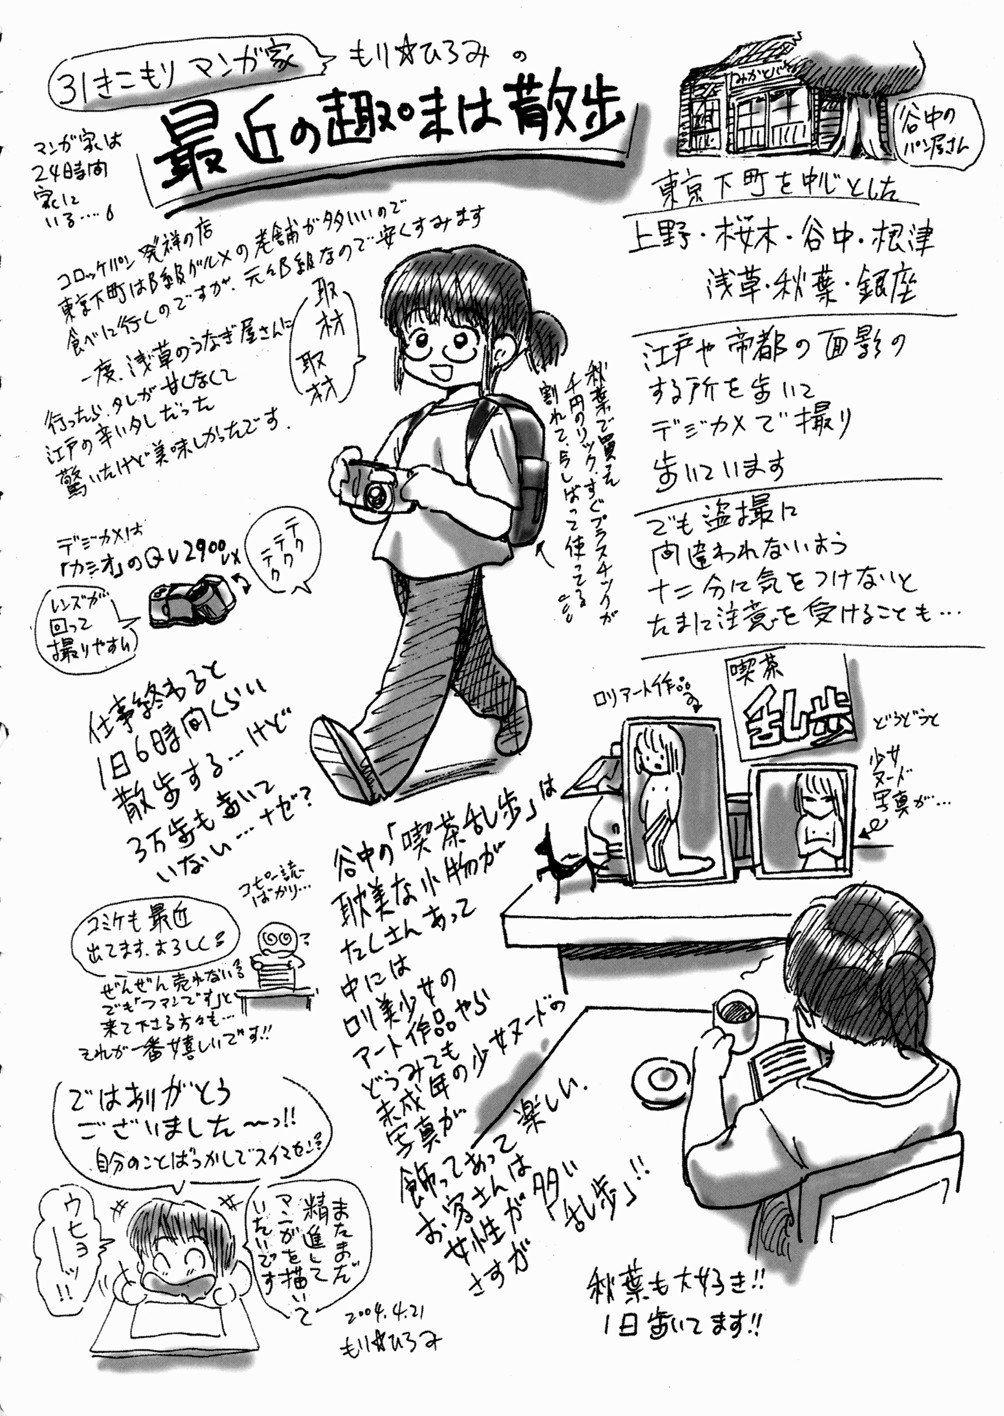 31きこもり マンガ家
もり☆ひろみ の
最近の趣味は散歩
マンガ家は
24時間
家に
いる…。
みかどパン
谷中の
パン屋さん
コロッケパン発祥の店
東京下町はB級グルメの老舗が多いいので
食べに行くのですが、元々B級なので安くすみます
一度、浅草のうなぎ屋さんに
行ったら、タレが甘くなくて
江戸の辛いタレだった
驚いたけど美味しかったです.
取材
取材
秋葉で買った
千円のリック、すぐプラスチックが
割れて、今しばって使ってる
東京下町を中心とした
上野・桜木・谷中・根津
浅草・秋葉・銀座
江戸や帝都の面影の
する所を歩いて
デジカメで撮り
歩いています
でも盗撮に
間違われないよう
十二分に気をつけないと
たまに注意を受けることも…
デジカメは
「カシオ」のQV2900UX
レンズが
回って
撮りやすい
テクテク
テクテク
仕事終わると
1日6時間くらい
散歩する…けど
3万歩も歩いて
いない…ナゼ?
ロリアート作品
喫茶
乱歩
どうどうと
少女
ヌード
写真が…
谷中の「喫茶乱歩」は
耽美な小物が
たくさんあって
中には
ロリ美少女の
アート作品やら
どうみても
未成年の少女ヌードの
写真が
飾ってあって 楽しい.
お客さんは
女性が多い
さすが「乱歩」!!
コピー誌
ばかり…
コミケも最近
出てます.よろしく
ぜんぜん売れない
でも「ファンです」と
来て下さる方々も…
それが一番嬉しいです!!
ではありがとう
ございました〜っ!!
自分のことばっかしでスイマセン
ウヒョーッ!!
まだまだ
精進して
マンガを描いて
いきたいです
2004.4.21
もり☆ひろみ
秋葉も大好き!!
1日歩いてます!!